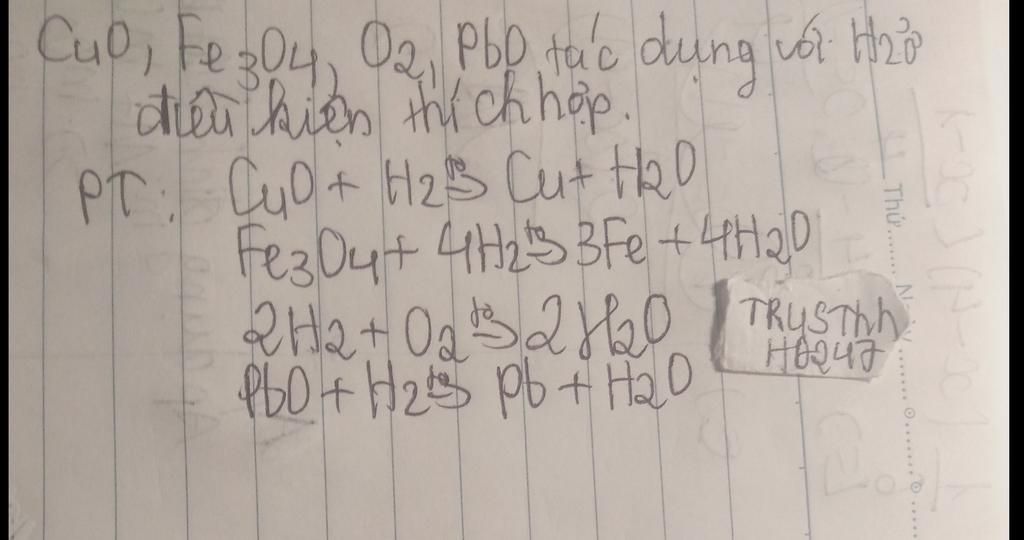 CuO, Fe3O4, O2, PbO tác dụng với H2 ở
điều kiện thích hợp.
PT: CuO + H2 t°→ Cu + H2O
Fe3O4 + 4H2 t°→ 3Fe + 4H2O
2H2 + O2 t°→ 2H2O
PbO + H2 t°→ Pb + H2O
Thứ
N